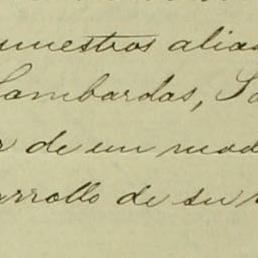 nuestros alia
Lombardas, Sa
de un mod
arrollo de su